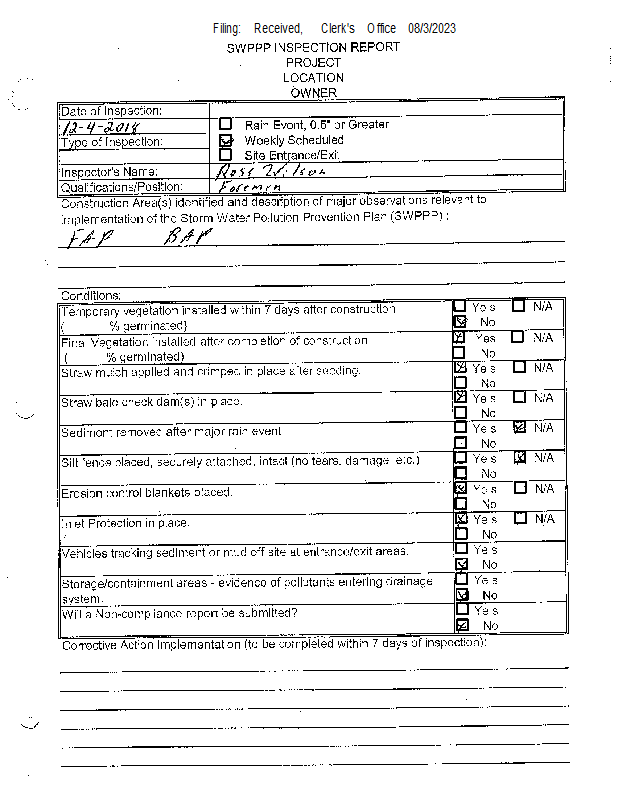 Filing: Received, Clerk's Office 08/3/2023
SWPPP INSPECTION REPORT
PROJECT
LOCATION
OWNER
Date of Inspection:
12-4-2018
☐ Rain Event, 0.5" or Greater
Type of Inspection:
☑ Weekly Scheduled
☐ Site Entrance/Exit
Inspector's Name: Ross Wilson
Qualifications/Position: Foremen
Construction Area(s) identified and description of major observations relevant to
implementation of the Storm Water Pollution Prevention Plan (SWPPP) :
FAP BAP
Conditions:
Temporary vegetation installed within 7 days after construction ☐ Yes ☐ N/A
( % germinated) ☑ No
Final Vegetation installed after completion of construction ☑ Yes ☐ N/A
( % germinated) ☐ No
Straw mulch applied and crimped in place after seeding. ☑ Yes ☐ N/A
☐ No
Straw bale check dam(s) in place. ☑ Yes ☐ N/A
☐ No
Sediment removed after major rain event ☐ Yes ☑ N/A
☐ No
Silt fence placed, securely attached, intact (no tears, damage, etc.) ☐ Yes ☑ N/A
☐ No
Erosion control blankets placed. ☑ Yes ☐ N/A
☐ No
Inlet Protection in place. ☑ Yes ☐ N/A
☐ No
Vehicles tracking sediment or mud off site at entrance/exit areas. ☐ Yes
☑ No
Storage/containment areas - evidence of pollutants entering drainage ☐ Yes
system. ☑ No
Will a Non-compliance report be submitted? ☐ Yes
☑ No
Corrective Action Implementation (to be completed within 7 days of inspection):